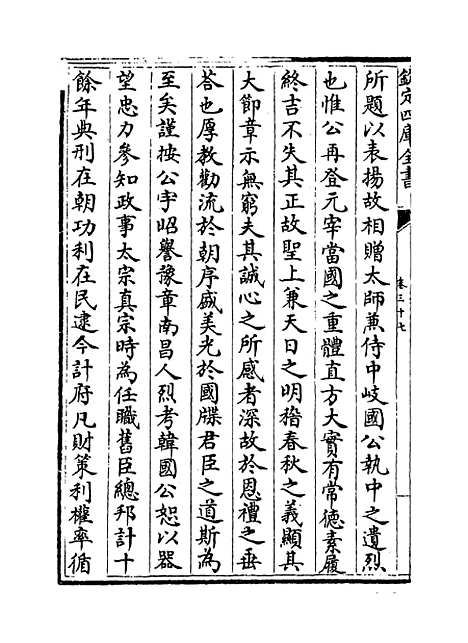 欽定四庫全書
卷三十七
所題以表揚故相贈太師兼侍中岐國公執中之遺烈
也惟公再登元宰當國之重體直方大實有常德素履
終吉不失其正故聖上兼天日之明稽春秋之義顯其
大節章示無窮夫其誠心之所感者深故於恩禮之垂
荅也厚教勸流於朝序感美光於國牒君臣之道斯為
至矣謹按公字昭譽豫章南昌人烈考韓國公恕以器
望忠力參知政事太宗真宗時為任職舊臣總邦計十
餘年典刑在朝功利在民逮今計府凡財策利權率循